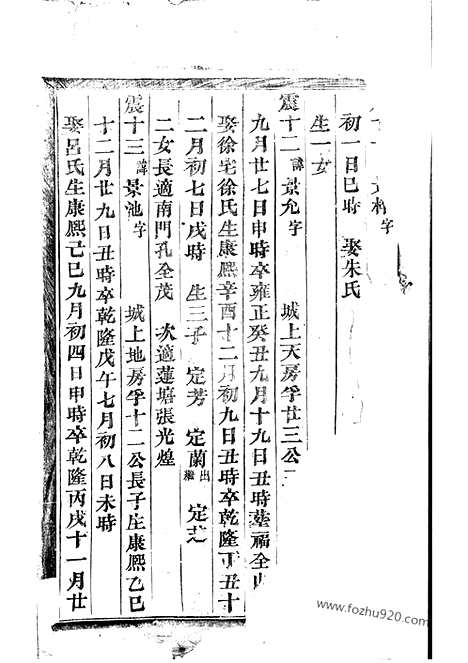 字
初一日巳時　娶朱氏
生一女
震十二諱景允字　城上天房孚廿三公
九月廿七日申時卒雍正癸丑九月十九日丑時塟福全山
娶徐宅徐氏生康熙辛酉十二月初九日丑時卒乾隆丁丑十
二月初七日戌時　生三子　定芳　定蘭出繼　定芝
二女長適南門孔全茂　次適蓮塘張光煌
震十三諱景池字　城上地房孚十二公長子生康熙乙巳
十二月廿九日丑時卒乾隆戊午七月初八日未時
娶呂氏生康熙己巳九月初四日申時卒乾隆丙戌十一月廿
www.fozhu920.com